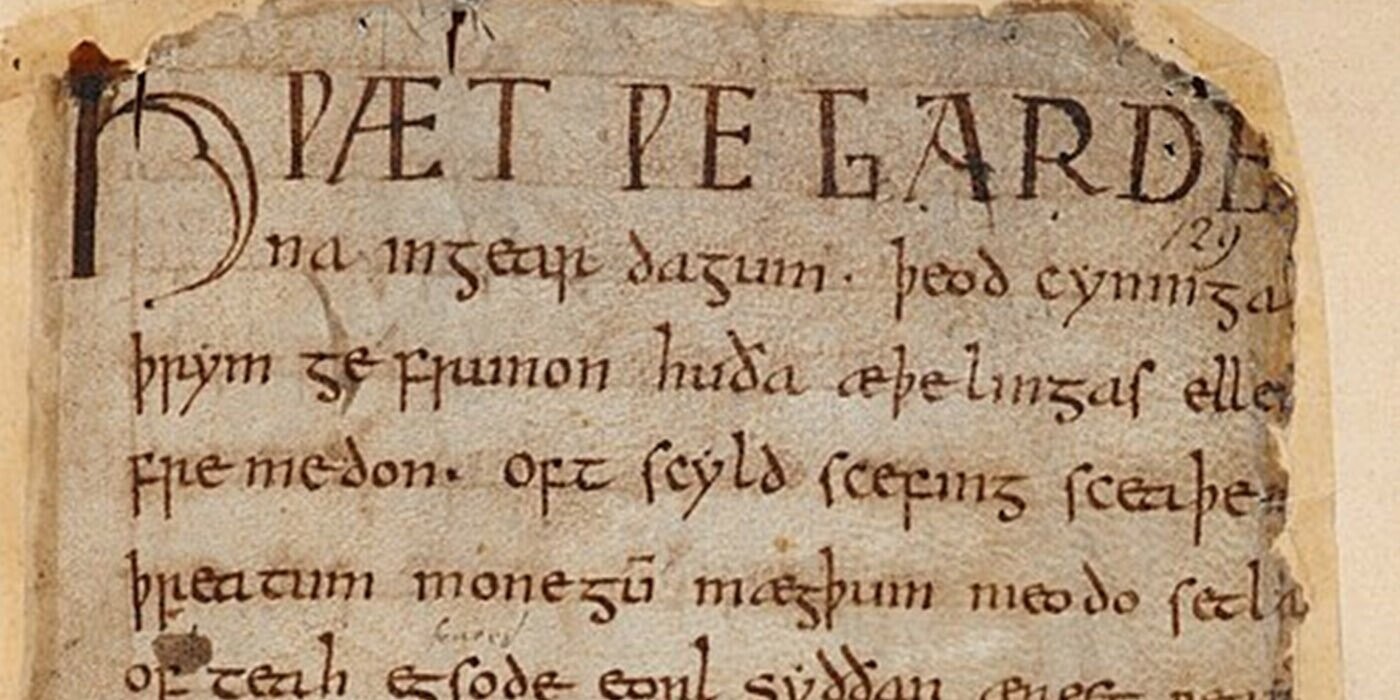 HǷÆT ǷE GARDE
na ingear dagum. þeod cyninga
þrym ge frunon huða æþelingas ellen
fre medon. oft scyld scefing sceaþe
þreatum monegū mægþum meodo setla
of teah egsode eorl syððan ærest
129